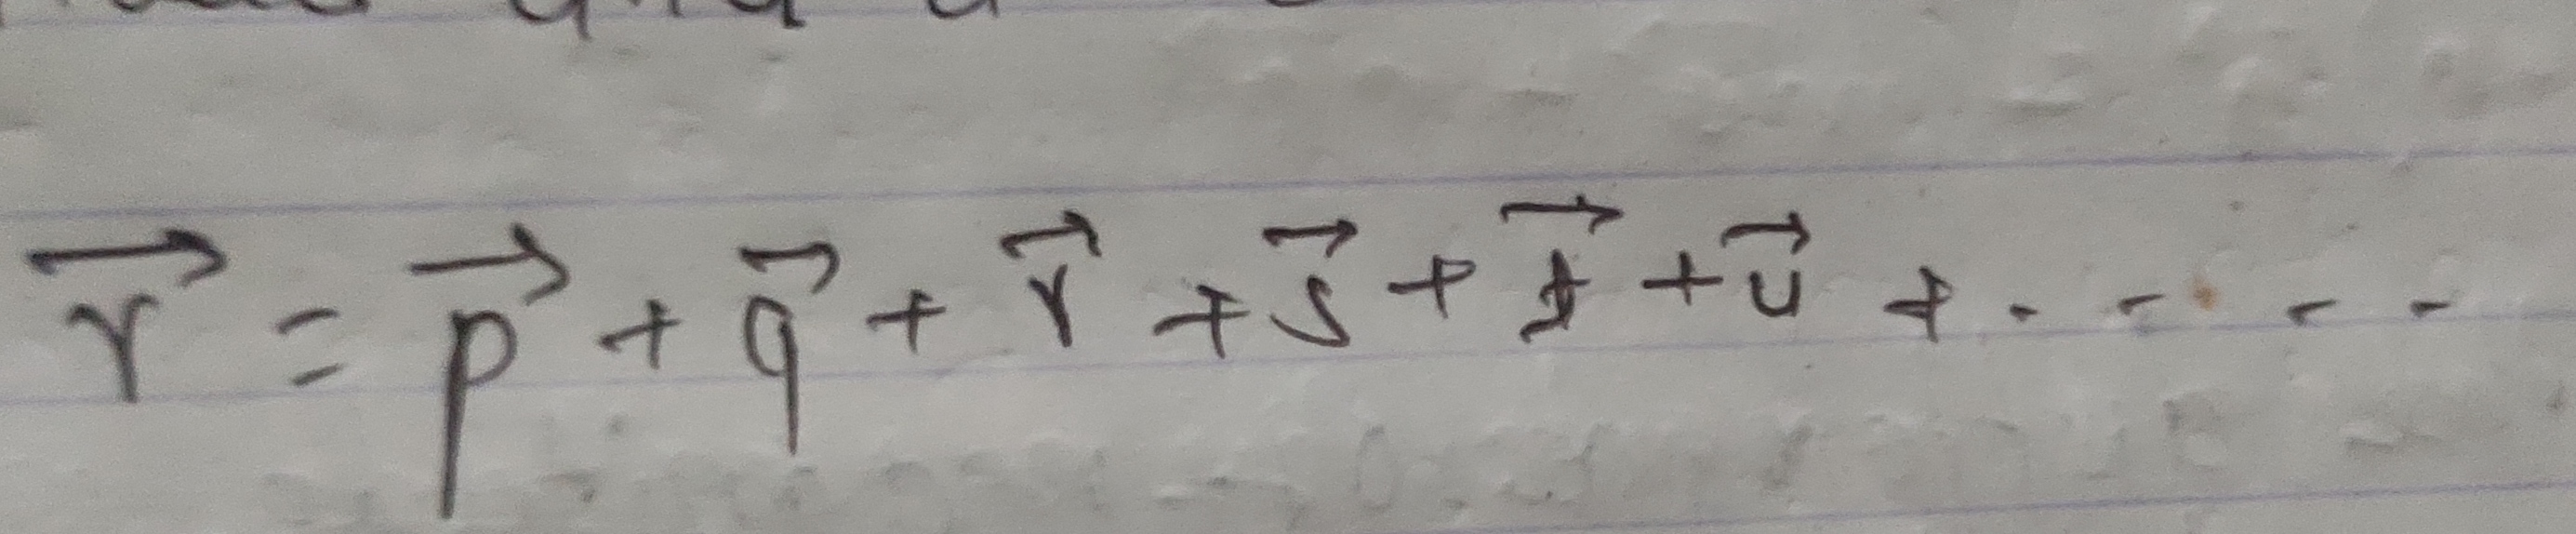 r⃗ = p⃗ + q⃗ + r⃗ + s⃗ + t⃗ + u⃗ + . - - -